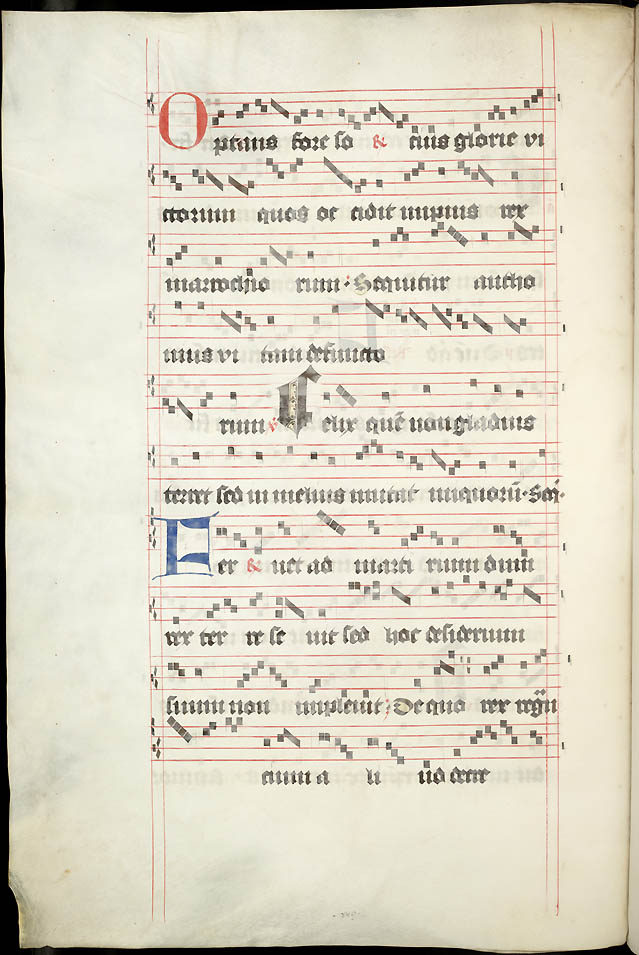 Optans fore so ℟ cius glorie vi
ctorum quos oc cidit impius rex
marrochio rum. Sequitur antho
nius vi cium defuncto
rum ℣ Felix quē non gladius
terret sed in melius mutat iniquorū. Seq̄.
Fer ℟ uet ad marti rium dum
rex ter re se uit sed hoc desiderium
suum non impleuit; De quo rex regū
cium a li ud decre